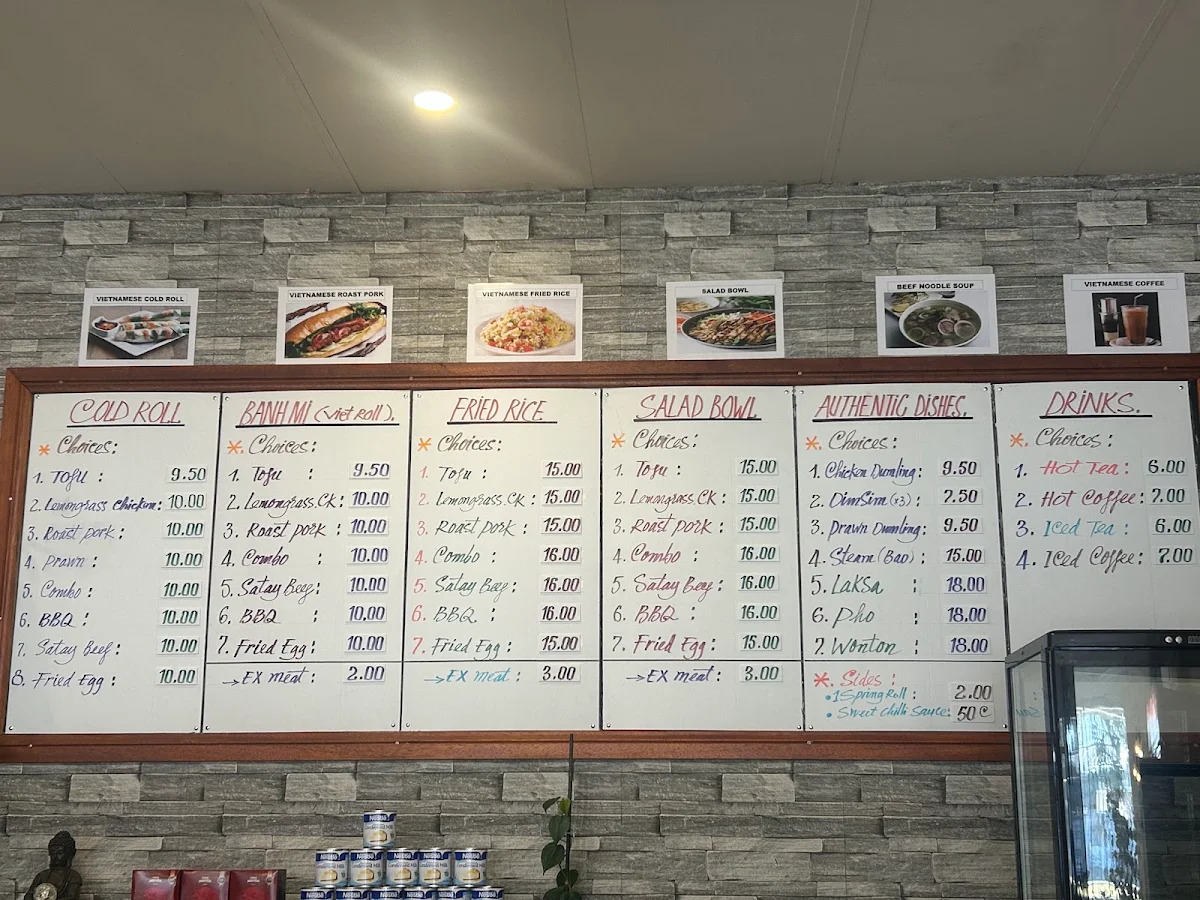 VIETNAMESE COLD ROLL
VIETNAMESE ROAST PORK
VIETNAMESE FRIED RICE
SALAD BOWL
BEEF NOODLE SOUP
VIETNAMESE COFFEE
COLD ROLL
* Choices:
1. Tofu : 9.50
2. Lemongrass Chicken: 10.00
3. Roast pork : 10.00
4. Prawn : 10.00
5. Combo : 10.00
6. BBQ : 10.00
7. Satay Beef : 10.00
8. Fried Egg : 10.00
BANH MI (Viet Roll).
*. Choices :
1. Tofu : 9.50
2. Lemongrass.CK : 10.00
3. Roast pork : 10.00
4. Combo : 10.00
5. Satay Beef : 10.00
6. BBQ : 10.00
7. Fried Egg : 10.00
→ EX meat : 2.00
FRIED RICE
* Choices :
1. Tofu : 15.00
2. Lemongrass.CK : 15.00
3. Roast pork : 15.00
4. Combo : 16.00
5. Satay Beef : 16.00
6. BBQ : 16.00
7. Fried Egg : 15.00
→ EX meat : 3.00
SALAD BOWL
* Choices:
1. Tofu : 15.00
2. Lemongrass.CK : 15.00
3. Roast pork : 15.00
4. Combo : 16.00
5. Satay Beef : 16.00
6. BBQ : 16.00
7. Fried Egg : 15.00
→ EX meat : 3.00
AUTHENTIC DISHES.
*. Choices :
1. Chicken Dumling : 9.50
2. DimSim (x3) : 2.50
3. Prawn Dumling : 9.50
4. Steam (Bao) : 15.00
5. Laksa : 18.00
6. Pho : 18.00
7. Wonton : 18.00
*. Sides :
• 1 Spring Roll : 2.00
• Sweet chilli Sauce: 50 C
DRINKS.
*. Choices :
1. Hot Tea : 6.00
2. Hot Coffee : 7.00
3. Iced Tea : 6.00
4. Iced Coffee : 7.00
Nestlé
Nestlé Nestlé Nestlé Nestlé Nestlé